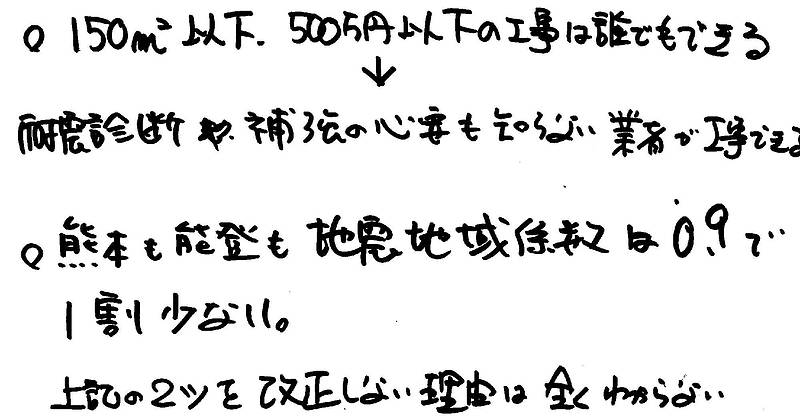 ○ 150m² 以下. 500万円以下の工事は誰でもできる
↓
耐震診断や補強の必要も知らない業者が工事できる
○ 熊本も能登も地震地域係数は0.9で
1割少ない。
上記の2ツを改正しない理由は全くわからない